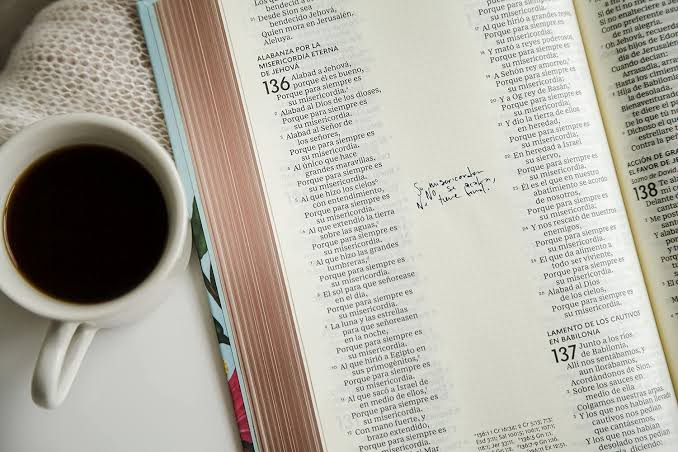 bendecid a
Desde Sion sea
bendecido Jehová,
Quien mora en Jerusalén.
Aleluya.
ALABANZA POR LA
MISERICORDIA ETERNA
DE JEHOVÁ
136 Alabad a Jehová,
porque él es bueno,
Porque para siempre es
su misericordia.
2 Alabad al Dios de los dioses,
Porque para siempre es
su misericordia.
3 Alabad al Señor de
los señores,
Porque para siempre es
su misericordia.
4 Al único que hace
grandes maravillas,
Porque para siempre es
su misericordia.
5 Al que hizo los cielos
con entendimiento,
Porque para siempre es
su misericordia.
6 Al que extendió la tierra
sobre las aguas,
Porque para siempre es
su misericordia.
7 Al que hizo las grandes
lumbreras,
Porque para siempre es
su misericordia.
8 El sol para que señorease
en el día,
Porque para siempre es
su misericordia.
9 La luna y las estrellas
para que señoreasen
en la noche,
Porque para siempre es
su misericordia.
10 Al que hirió a Egipto en
sus primogénitos,
Porque para siempre es
su misericordia.
11 Al que sacó a Israel de
en medio de ellos,
Porque para siempre es
su misericordia.
12 Con mano fuerte, y
brazo extendido,
Porque para siempre es
Su misericordia
No se acaba,
No tiene
su misericordia.
17 Al que hirió a grandes reyes,
Porque para siempre es
su misericordia;
18 Y mató a reyes poderosos,
Porque para siempre es
su misericordia;
19 A Sehón rey amorreo,
Porque para siempre es
su misericordia;
20 Y a Og rey de Basán,
Porque para siempre es
su misericordia;
21 Y dio la tierra de ellos
en heredad,
Porque para siempre es
su misericordia;
22 En heredad a Israel
su siervo,
Porque para siempre es
su misericordia.
23 Él es el que en nuestro
abatimiento se acordó
de nosotros,
Porque para siempre es
su misericordia;
24 Y nos rescató de nuestros
enemigos,
Porque para siempre es
su misericordia.
25 El que da alimento a
todo ser viviente,
Porque para siempre es
su misericordia.
26 Alabad al Dios
de los cielos,
Porque para siempre es
su misericordia.
LAMENTO DE LOS CAUTIVOS
EN BABILONIA
137 Junto a los ríos
de Babilonia,
Allí nos sentábamos, y
aun llorábamos,
Acordándonos de Sion.
2 Sobre los sauces en
medio de ella
Colgamos nuestras arpas.
3 Y los que nos habían llevado
cautivos nos pedían
que cantásemos,
Y los que nos habían
desolado nos pedían
diciendo:
Como preferente
de mi alegría.
Oh Jehová, recuerda
los hijos de Edom
día de Jerusalén
Cuando decían:
Arrasadla, arras
hasta los cimientos
8 Hija de Babilonia
la desolada,
Bienaventurado
te diere el
De lo que tú
9 Dichoso el que
estrellare
Contra la
ACCIÓN DE GRA
EL FAVOR DE JE
Salmo de David.
138 Te
Delante